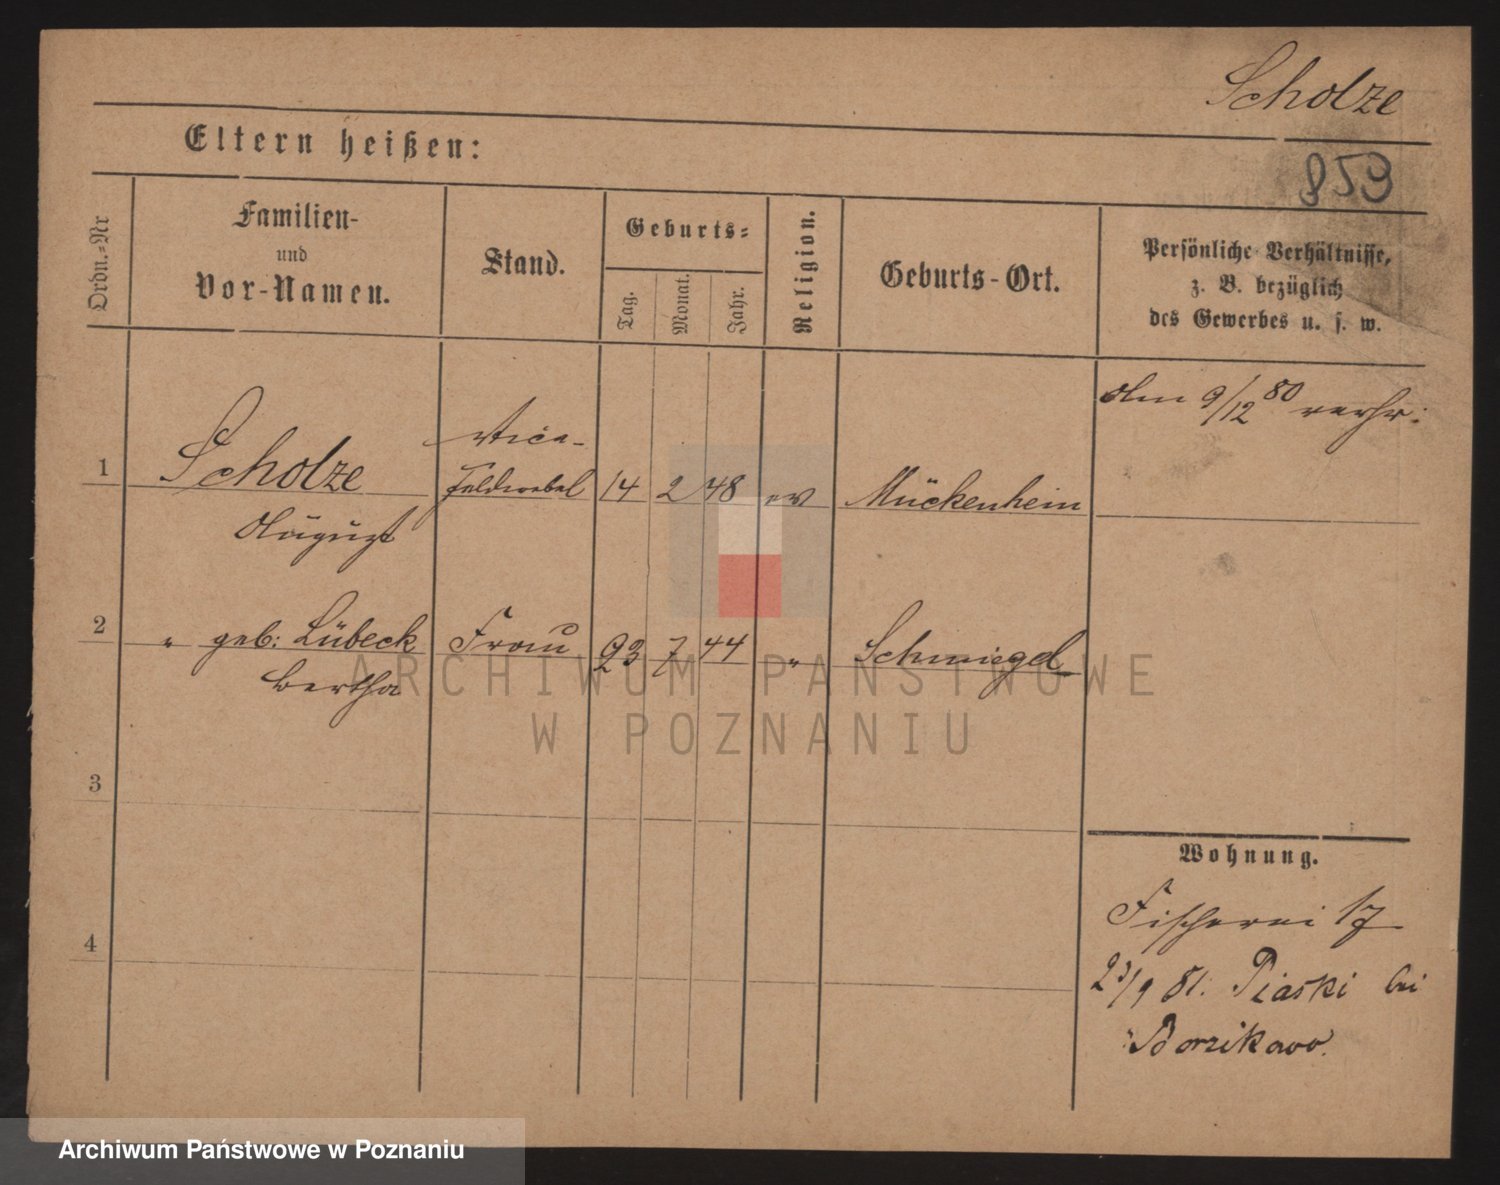 Scholze
Eltern heißen:
853
Ordn.-Nr
Familien-
und
Vor-Namen.
Stand.
Geburts-
Tag.
Monat.
Jahr.
Religion.
Geburts-Ort.
Persönliche Verhältnisse,
z. B. bezüglich
des Gewerbes u. s. w.
Am 9/12 80 verhr:
1 Scholze Vice- Feldwebel 14 2 48 ev Mückenhein
August
2 " geb: Lübeck Frau 23 7 44 " Schmiegel
Bertha
3
4
Wohnung.
Fischerei 17
23/9 81. Piaski bei
Borzikowo.
ARCHIWUM PAŃSTWOWE
W POZNANIU
Archiwum Państwowe w Poznaniu